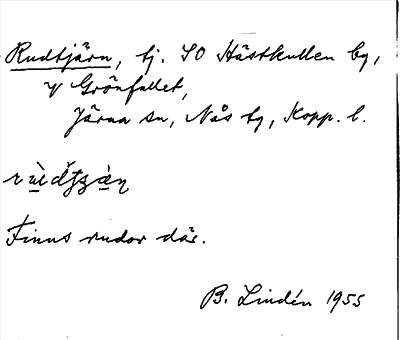 Rudtjärn, tj. SO Hästkullen by,
v Grönfallet,
Järna sn, Nås tg, Kopp. l.
Finns rudor där.
B. Lindén 1955